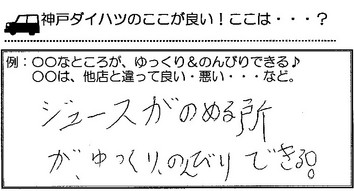 神戸ダイハツのここが良い！ここは・・・？
例：〇〇なところが、ゆっくり＆のんびりできる♪
〇〇は、他店と違って良い・悪い・・・など。
ジュースがのめる所
が、ゆっくり、のんびりできる。